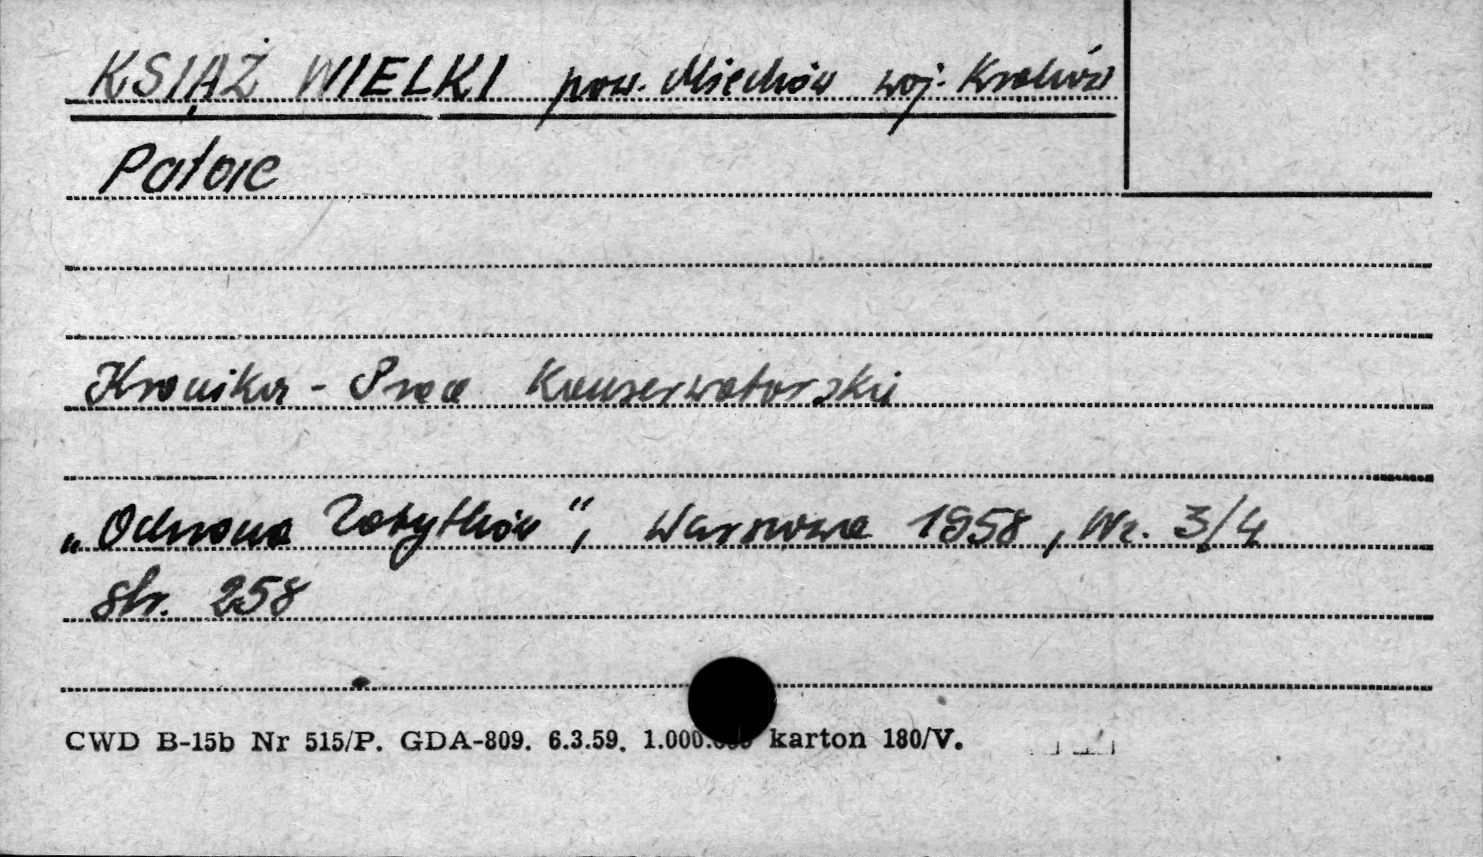 KSIĄŻ WIELKI pow. Miechów woj. Kraków
Pałac
Kronika - Prace Konserwatorskie
„Ochrona Zabytków", Warszawa 1958, Nr. 3/4
str. 258
CWD B-15b Nr 515/P. GDA-809. 6.3.59. 1.000.000 karton 180/V.